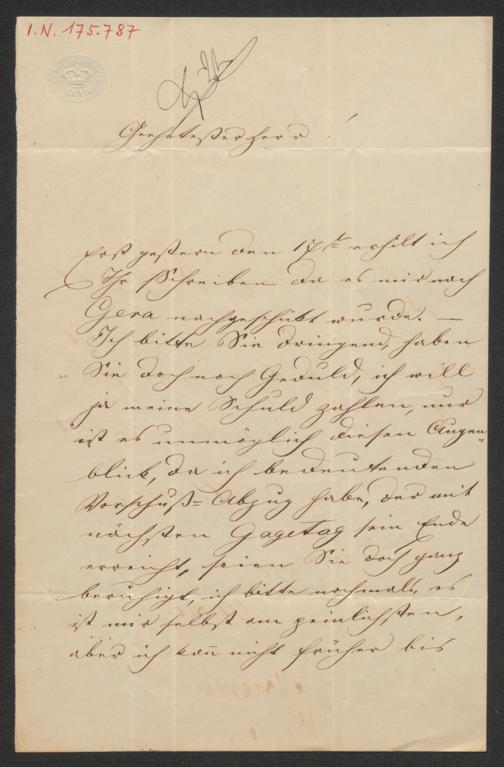 I.N. 175.787
Geehrtester Herr !
Erst gestern den 17t erhilt ich
Ihr Schreiben da es mir nach
Gera nachgeschikt wurde. —
Ich bitte Sie dringend, haben
Sie doch noch Geduld, ich will
ja meine Schuld zahlen, nur
ist es unmöglich diesen Augen„
blick, da ich bedeutenden
Vorschuß= Abzug habe, der mit
nächsten Gagetag sein Ende
erreicht, seien Sie doch ganz
beruhigt, ich bitte nochmals, es
ist mir selbst am peinlichsten,
aber ich kan̄ nicht früher bis